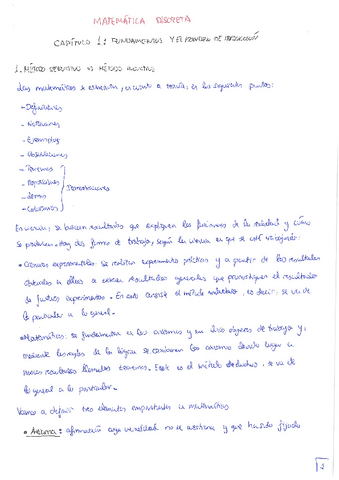 MATEMÁTICA DISCRETA
CAPÍTULO 1: FUNDAMENTOS Y EL PRINCIPIO DE INDUCCIÓN
1. MÉTODO DEDUCTIVO VS MÉTODO INDUCTIVO
Las matemáticas se estructuran, en cuanto a teoría, en los siguientes puntos:
- Definiciones
- Notaciones
- Ejemplos
- Observaciones
- Teoremas
- Proposiciones
Demostraciones
- Lemas
- Corolarios
En ciencia, se buscan resultados que expliquen los fenómenos de la realidad y cómo
se producen. Hay dos formas de trabajo, según la ciencia en que se esté trabajando:
• Ciencias experimentales: se realizan experimentos prácticos y a partir de los resultados
obtenidos en ellos se extraen resultados generales que pronostiquen el resultado
de futuros experimentos. En esto consiste el método inductivo, es decir, se va de
lo particular a lo general.
• Matemáticas: se fundamentan en los axiomas y en unos objetos de trabajo y,
mediante las reglas de la lógica se combinan los axiomas dando lugar a
nuevos resultados llamados teoremas. Este es el método deductivo, se va de
lo general a lo particular.
Vamos a definir tres elementos importantes en matemáticas
• Axioma: afirmación cuya veracidad no se cuestiona y que ha sido fijada